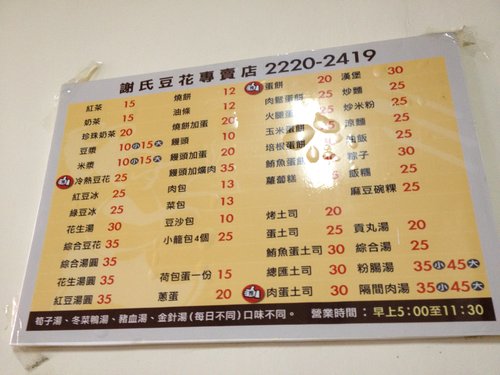 謝氏豆花專賣店 2220-2419
紅茶 15
奶茶 15
珍珠奶茶 20
豆漿 10小15大
米漿 10小15大
冷熱豆花 25
紅豆冰 25
綠豆冰 25
花生湯 30
綜合豆花 35
綜合湯圓 35
花生湯圓 35
紅豆湯圓 35
燒餅 12
油條 12
燒餅加蛋 20
饅頭 10
饅頭加蛋 20
饅頭加爌肉 35
肉包 13
菜包 13
豆沙包 10
小籠包4個 25
荷包蛋一份 15
蔥蛋 20
蛋餅 20
肉鬆蛋餅 25
火腿蛋餅
玉米蛋餅
培根蛋餅
鮪魚蛋餅
蘿蔔糕 25
烤土司 20
蛋土司 25
鮪魚蛋土司 30
總匯土司 30
肉蛋土司 30
漢堡 30
炒麵 25
炒米粉 25
涼麵 25
油飯 25
粽子 30
飯糰 25
麻豆碗粿 25
貢丸湯 20
綜合湯 25
粉腸湯 35小45大
隔間肉湯 35小45大
筍子湯、冬菜鴨湯、豬血湯、金針湯(每日不同)口味不同。 營業時間：早上5:00至11:30